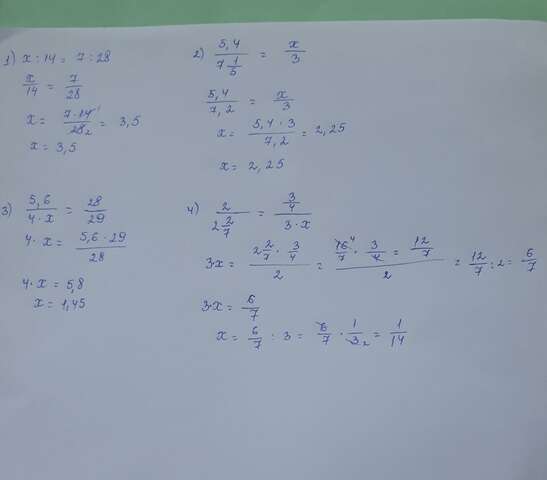 1) x : 14 = 7 : 28
x/14 = 7/28
x = 7·14¹/28₂ = 3,5
x = 3,5
2) 5,4/7 1/5 = x/3
5,4/7,2 = x/3
x = 5,4·3/7,2 = 2,25
x = 2,25
3) 5,6/4·x = 28/29
4·x = 5,6·29/28
4·x = 5,8
x = 1,45
4) 2/2 2/7 = 3/4/3·x
3x = 2 2/7 · 3/4/2 = 16⁴/7 · 3/4 = 12/7/2 = 12/7 : 2 = 6/7
3·x = 6/7
x = 6/7 : 3 = 6/7 · 1/3₂ = 1/14